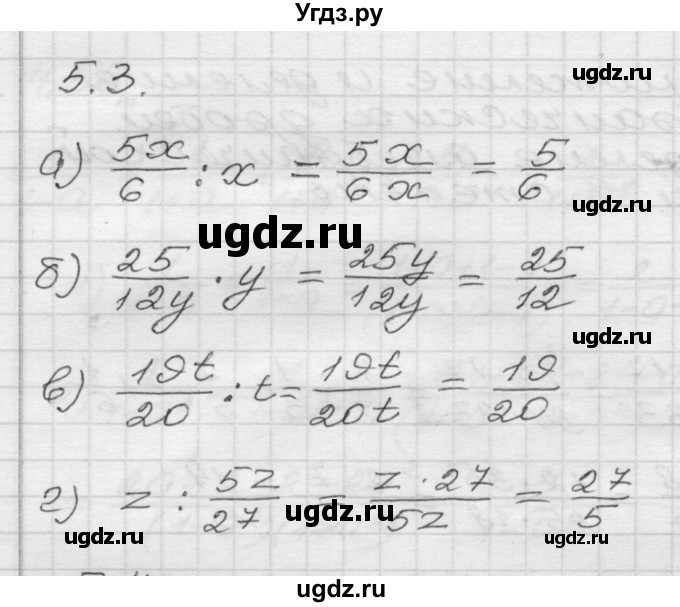 Угдз.ру
ugdz.ru
5.3.
а) 5x/6 : x = 5x/6x = 5/6
ugdz.ru
ugdz.ru
б) 25/12y · y = 25y/12y = 25/12
ugdz.ru
в) 19t/20 : t = 19t/20t = 19/20
г) z : 5z/27 = z · 27/5z = 27/5
ugdz.ru
ugdz.ru
ugdz.ru
ugdz.ru